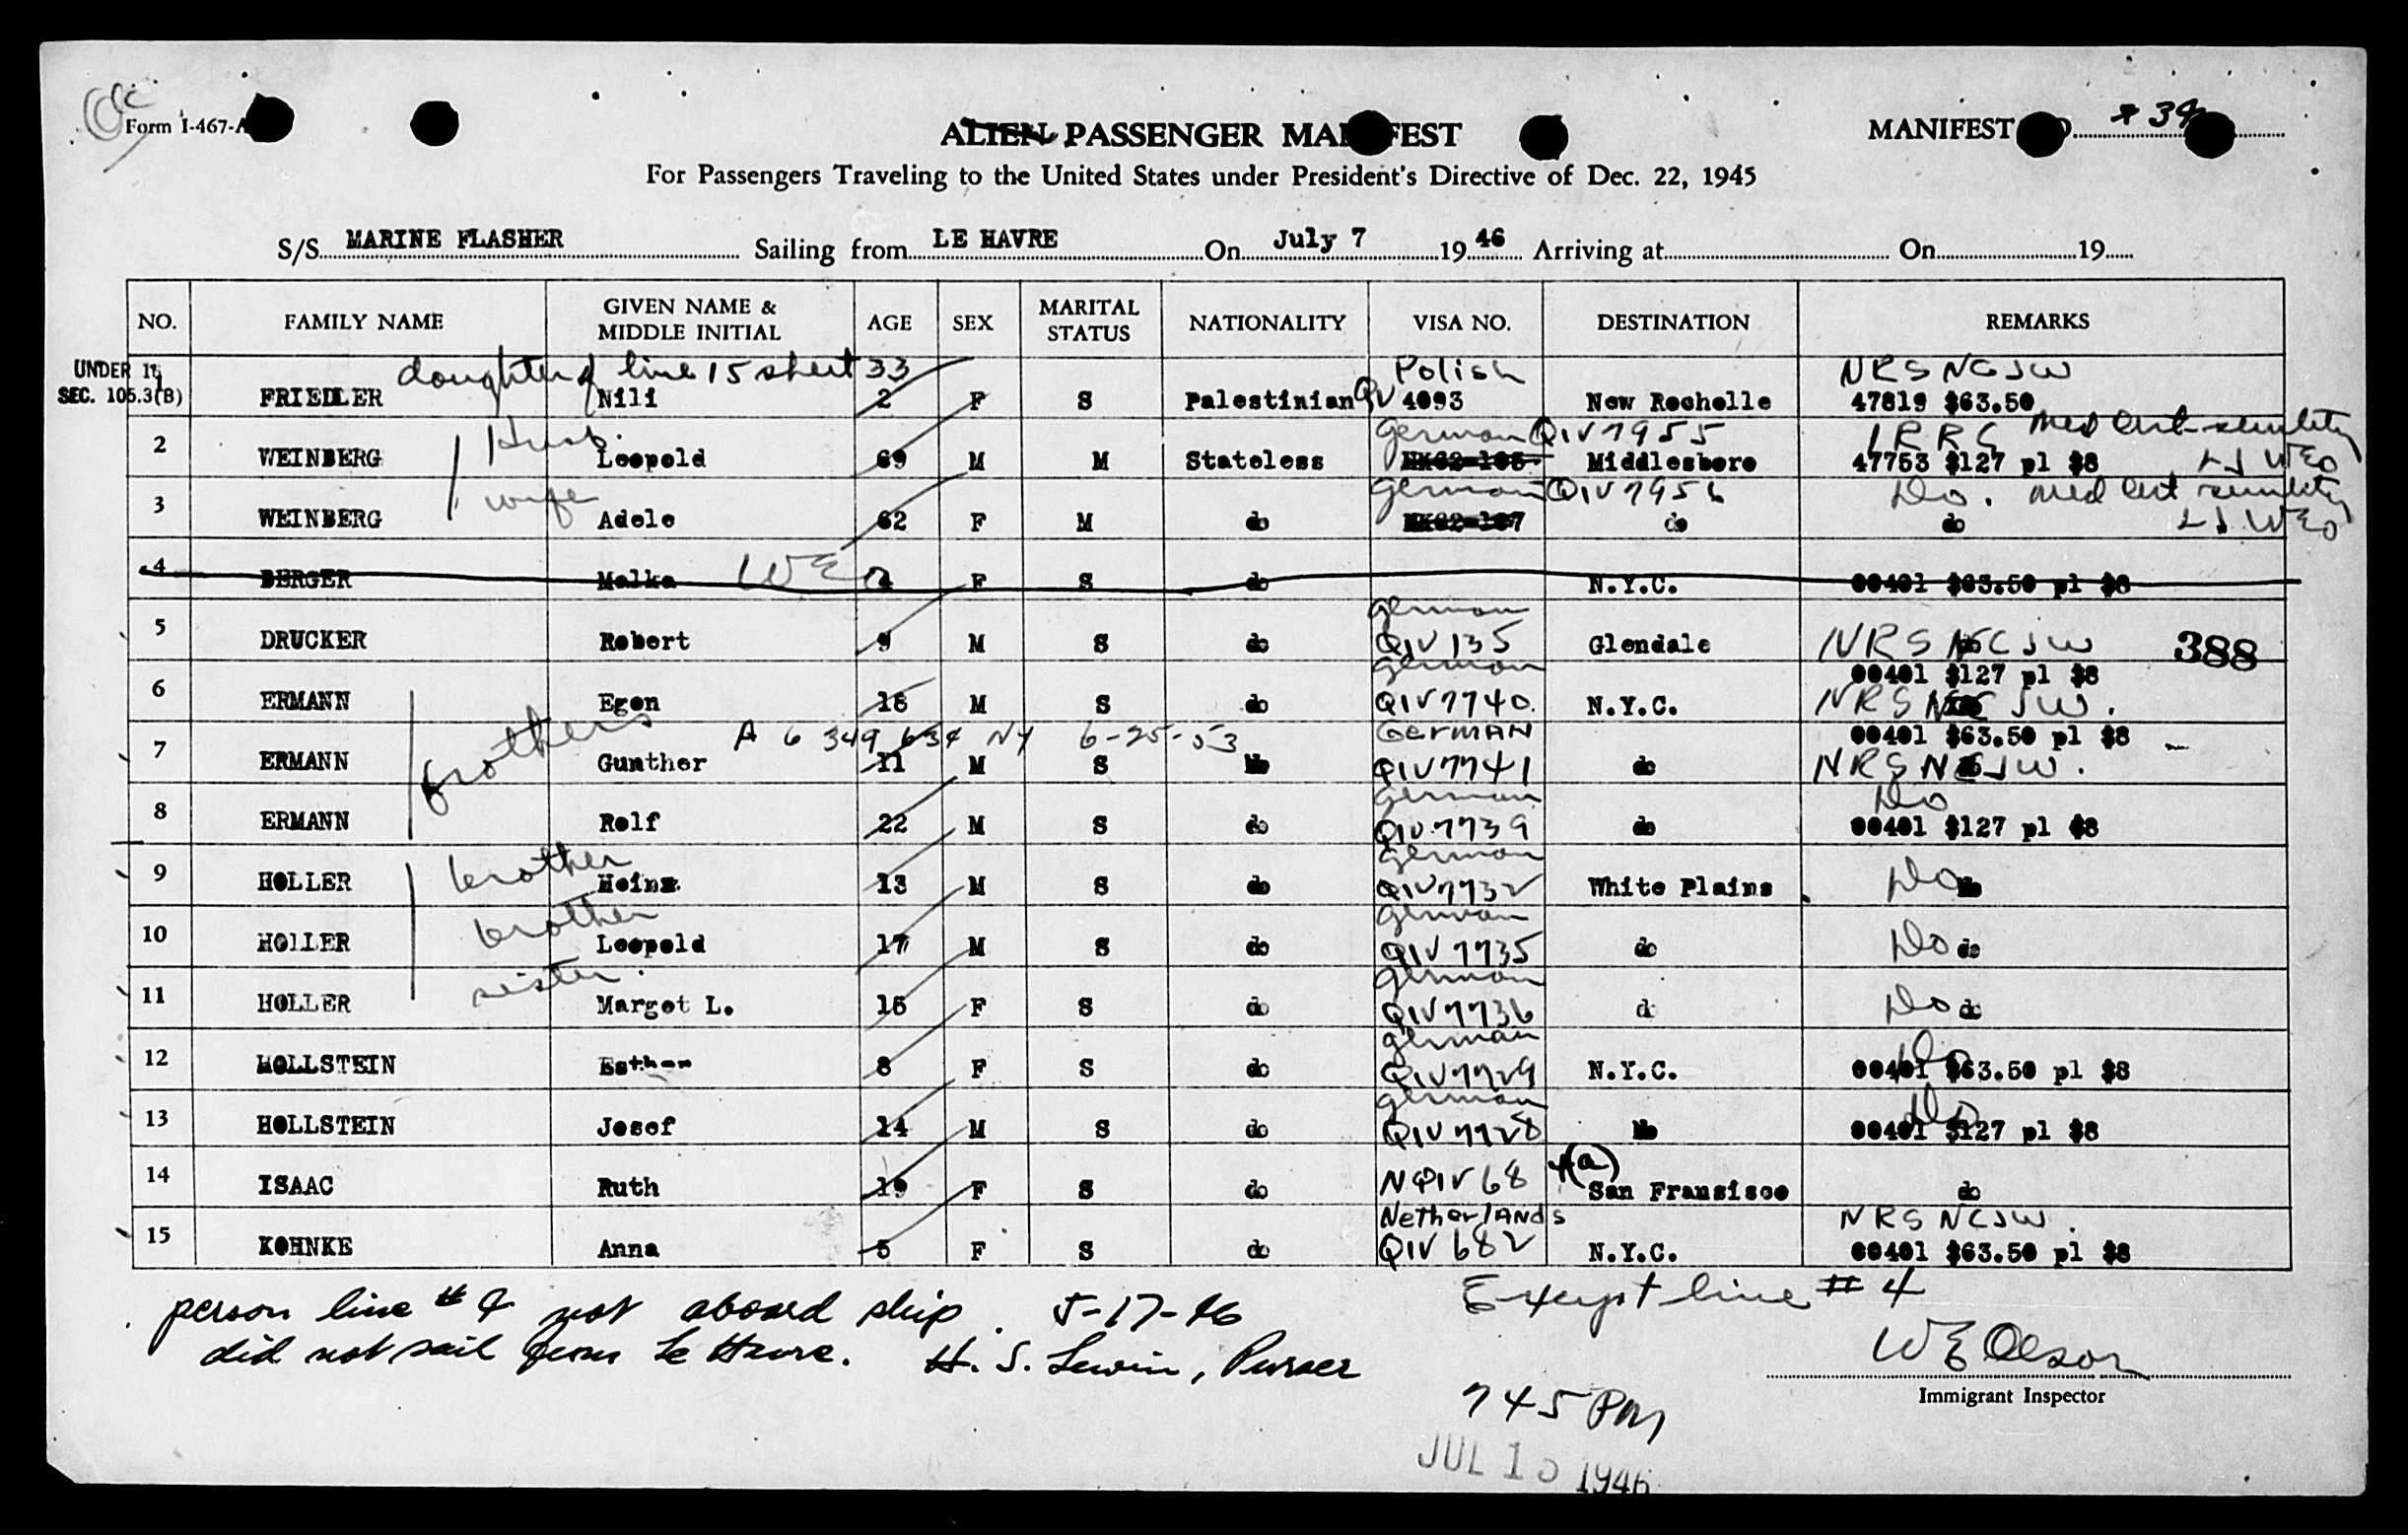 Form I-467-A
ALIEN PASSENGER MANIFEST
MANIFEST NO. 34
For Passengers Traveling to the United States under President's Directive of Dec. 22, 1945
S/S MARINE FLASHER Sailing from LE HAVRE On July 7 1946 Arriving at On 19
NO. FAMILY NAME GIVEN NAME & MIDDLE INITIAL AGE SEX MARITAL STATUS NATIONALITY VISA NO. DESTINATION REMARKS
UNDER 16 daughter of line 15 sheet 33 Polish NRS NCJW
SEC. 105.3(B) FRIEDLER Nili 2 F S Palestinian QV 4093 New Rochelle 47819 $63.50
Husb. German QIV 7955 Med Cert senility
2 WEINBERG Leopold 69 M M Stateless Middlesboro 47753 $127 pl $8 WEO
wife German QIV 7956 Do. Med Cert senility
3 WEINBERG Adele 62 F M do do do WEO
4 BERGER Malka WEO 4 F S do N.Y.C. 00401 $63.50 pl $8
German
5 DRUCKER Robert 9 M S do QIV 135 Glendale NRS NCJW 388
German 00401 $127 pl $8
6 ERMANN Egon 16 M S do QIV 7740 N.Y.C. NRS NCJW.
brothers A 6 349 634 NY 6-25-53 GERMAN 00401 $63.50 pl $8
7 ERMANN Gunther 11 M S do QIV 7741 do NRS NCJW.
German Do
8 ERMANN Rolf 22 M S do QIV 7739 do 00401 $127 pl $8
brother German
9 HOLLER Heinz 13 M S do QIV 7732 White Plains Do do
brother German
10 HOLLER Leopold 17 M S do QIV 7735 do Do do
sister. German
11 HOLLER Margot L. 15 F S do QIV 7736 d Do do
German Do
12 HOLLSTEIN Esther 8 F S do QIV 7729 N.Y.C. 00401 $63.50 pl $8
German Do
13 HOLLSTEIN Josef 14 M S do QIV 7728 do 00401 $127 pl $8
4(a)
14 ISAAC Ruth 19 F S do NQIV 68 San Fransisco do
Netherlands NRS NCJW.
15 KOHNKE Anna 5 F S do QIV 682 N.Y.C. 00401 $63.50 pl $8
person line # 4 not aboard ship. 5-17-46
did not sail from Le Havre. H. S. Lewin, Purser
Except line # 4
W E Olson
Immigrant Inspector
745 PM
JUL 15 1946